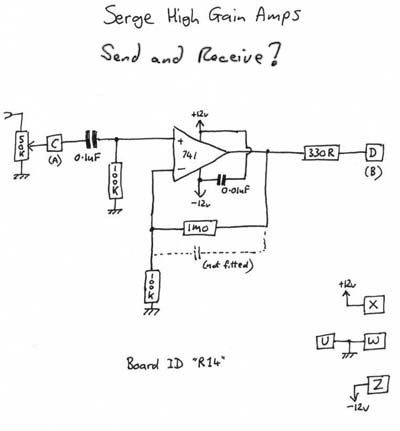 Serge High Gain Amps
Send and Receive?
+12v
50K
C
(A)
0.1uF
+
741
-
100K
0.01uF
-12v
330R
D
(B)
1M0
(not fitted)
100K
+12v
X
U
W
Z
-12v
Board ID "R14"